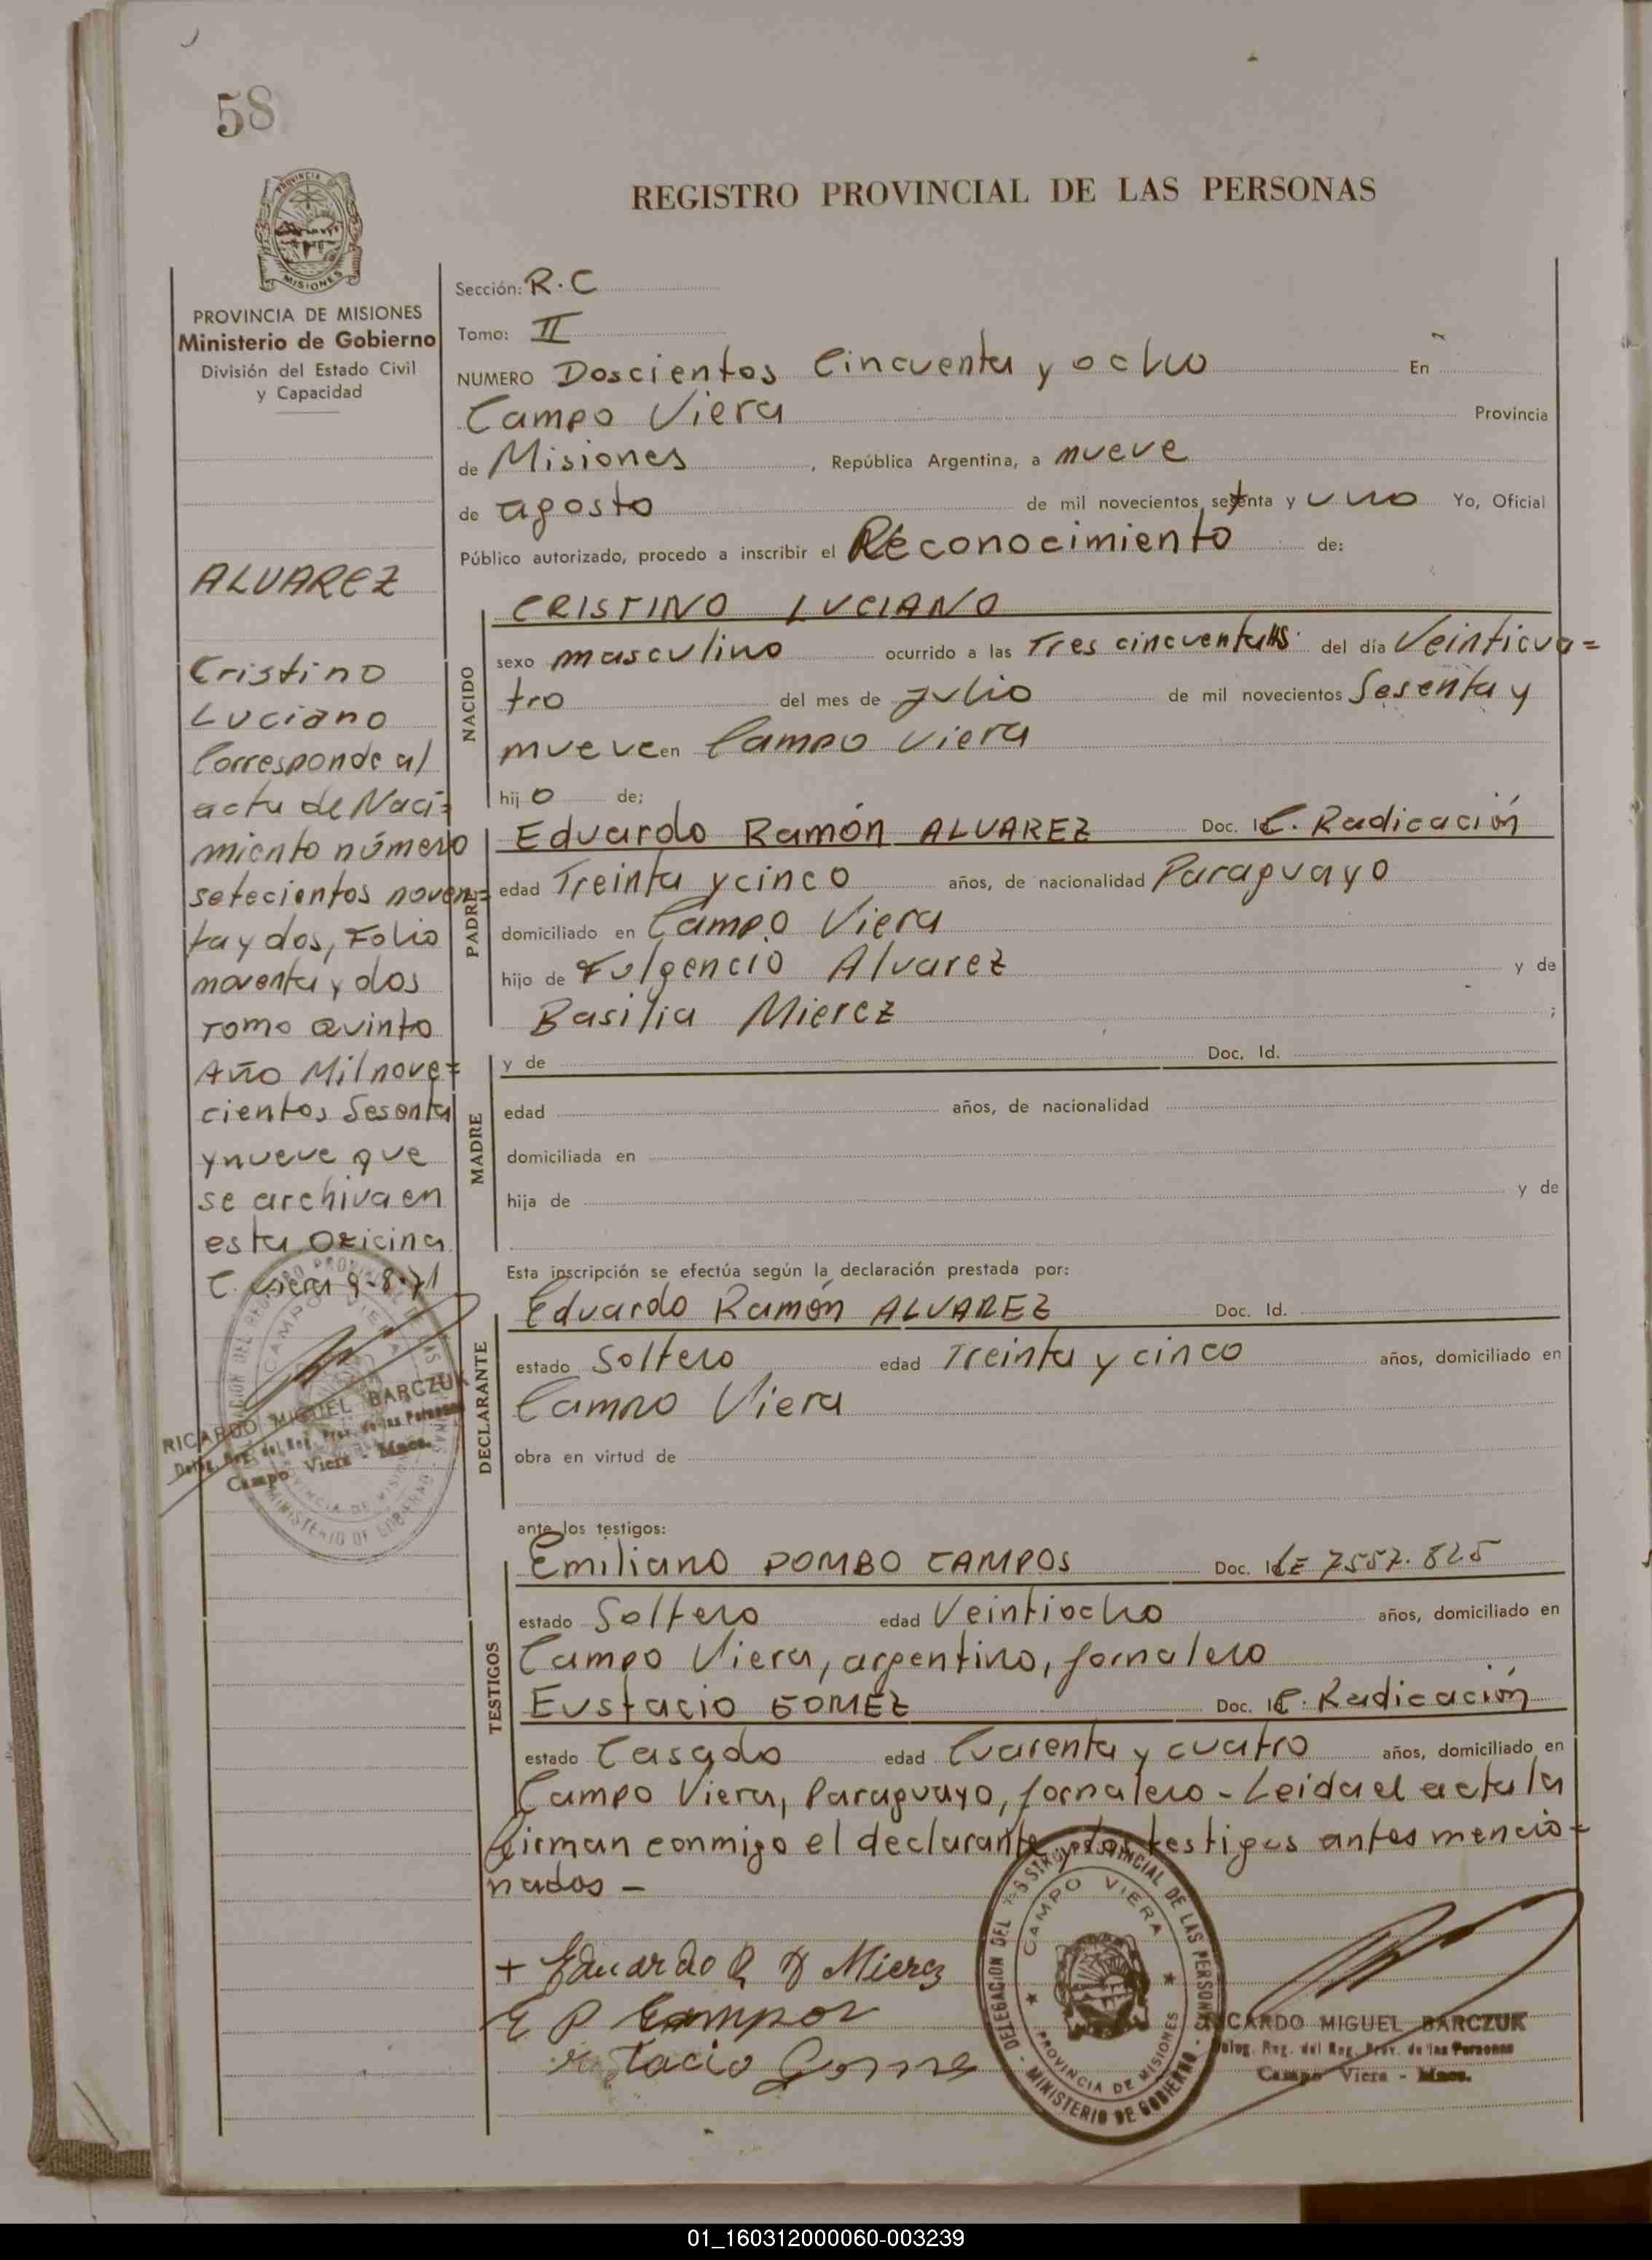 58
REGISTRO PROVINCIAL DE LAS PERSONAS
PROVINCIA DE
MISIONES
PROVINCIA DE MISIONES
Ministerio de Gobierno
División del Estado Civil
y Capacidad
ALVAREZ
Cristino
Luciano
Corresponde al
acta de Naci=
miento número
setecientos noven=
ta y dos, Folio
noventa y dos
Tomo Quinto
Año Mil nove=
cientos Sesenta
y nueve que
se archiva en
esta Oficina
C. Viera 9-8-71
RICARDO MIGUEL BARCZUK
Deleg. Reg. del Reg. Prov. de las Personas
Campo Viera - Mnes.
Sección: R.C
Tomo: II
NUMERO Doscientos Cincuenta y ocho En
Campo Viera Provincia
de Misiones, República Argentina, a nueve
de agosto de mil novecientos setenta y uno Yo, Oficial
Público autorizado, procedo a inscribir el Reconocimiento de:
NACIDO
CRISTINO LUCIANO
sexo masculino ocurrido a las Tres cincuenta HS. del día Veinticua=
tro del mes de julio de mil novecientos Sesenta y
nueve en Campo Viera
hijo de;
PADRE
Eduardo Ramón ALVAREZ Doc. Id. C. Radicación
edad Treinta y cinco años, de nacionalidad Paraguayo
domiciliado en Campo Viera
hijo de Fulgencio Alvarez y de
Basilia Mierez ;
MADRE
y de Doc. Id.
edad años, de nacionalidad
domiciliada en
hija de y de
Esta inscripción se efectúa según la declaración prestada por:
DECLARANTE
Eduardo Ramón ALVAREZ Doc. Id.
estado Soltero edad Treinta y cinco años, domiciliado en
Campo Viera
obra en virtud de
ante los testigos:
TESTIGOS
Emiliano POMBO CAMPOS Doc. Id. LE 7557.825
estado Soltero edad Veintiocho años, domiciliado en
Campo Viera, argentino, jornalero
Eustacio GOMEZ Doc. Id. C. Radicación
estado Casado edad Cuarenta y cuatro años, domiciliado en
Campo Viera, Paraguayo, jornalero - Leida el acta la
firman conmigo el declarante y los testigos antes mencio=
nados -
+ Eduardo R A Mierez
E P Campos
DELEGACION DEL REGISTRO PROVINCIAL DE LAS PERSONAS - MINISTERIO DE GOBIERNO -
CAMPO VIERA
PROVINCIA DE MISIONES
RICARDO MIGUEL BARCZUK
Deleg. Reg. del Reg. Prov. de las Personas
Campo Viera - Mnes.
01_160312000060-003239